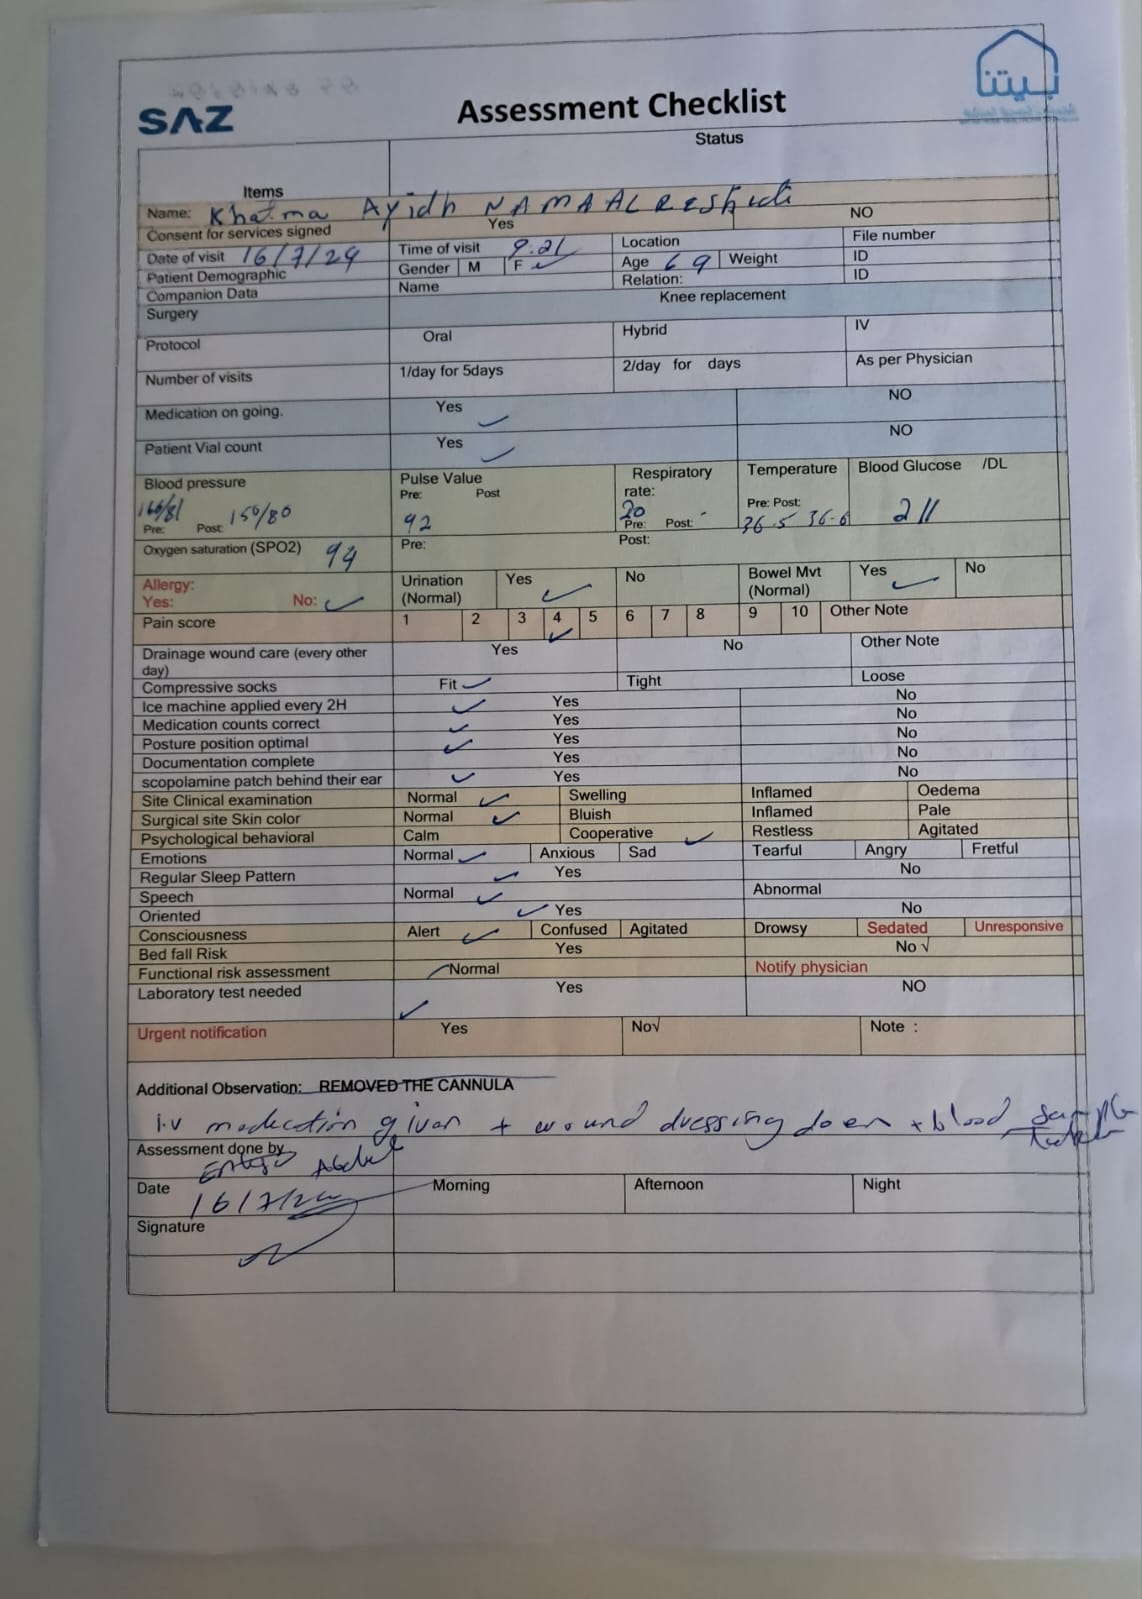 SAZ
بيتنا
Assessment Checklist
Items Status
Name: Khatma Ayidh NAMA AL Reshidi
Consent for services signed Yes NO
Date of visit 16/7/24 Time of visit 9.21 Location File number
Patient Demographic Gender M F ✓ Age 69 Weight ID
Companion Data Name Relation: ID
Surgery Knee replacement
Protocol Oral Hybrid IV
Number of visits 1/day for 5days 2/day for days As per Physician
Medication on going. Yes ✓ NO
Patient Vial count Yes ✓ NO
Blood pressure Pulse Value Respiratory rate: Temperature Blood Glucose /DL
Pre: Post Pre: Post:
/81 150/80 92 20 36.5 36.6 211
Pre: Post: Pre: Post:
Oxygen saturation (SPO2) 94 Pre: Post:
Allergy: Urination (Normal) Yes ✓ No Bowel Mvt (Normal) Yes ✓ No
Yes: No: ✓
Pain score 1 2 3 4 ✓ 5 6 7 8 9 10 Other Note
Drainage wound care (every other day) Yes No Other Note
Compressive socks Fit ✓ Tight Loose
Ice machine applied every 2H ✓ Yes No
Medication counts correct ✓ Yes No
Posture position optimal ✓ Yes No
Documentation complete Yes No
scopolamine patch behind their ear ✓ Yes No
Site Clinical examination Normal ✓ Swelling Inflamed Oedema
Surgical site Skin color Normal ✓ Bluish Inflamed Pale
Psychological behavioral Calm Cooperative ✓ Restless Agitated
Emotions Normal ✓ Anxious Sad Tearful Angry Fretful
Regular Sleep Pattern ✓ Yes No
Speech Normal ✓ Abnormal
Oriented ✓ Yes No
Consciousness Alert ✓ Confused Agitated Drowsy Sedated Unresponsive
Bed fall Risk Yes No √
Functional risk assessment ✓ Normal Notify physician
Laboratory test needed ✓ Yes NO
Urgent notification Yes No√ Note :
Additional Observation: REMOVED THE CANNULA
i.v medication given + wound dressing doen + blood sample
Assessment done by
Date 16/7/24 Morning Afternoon Night
Signature